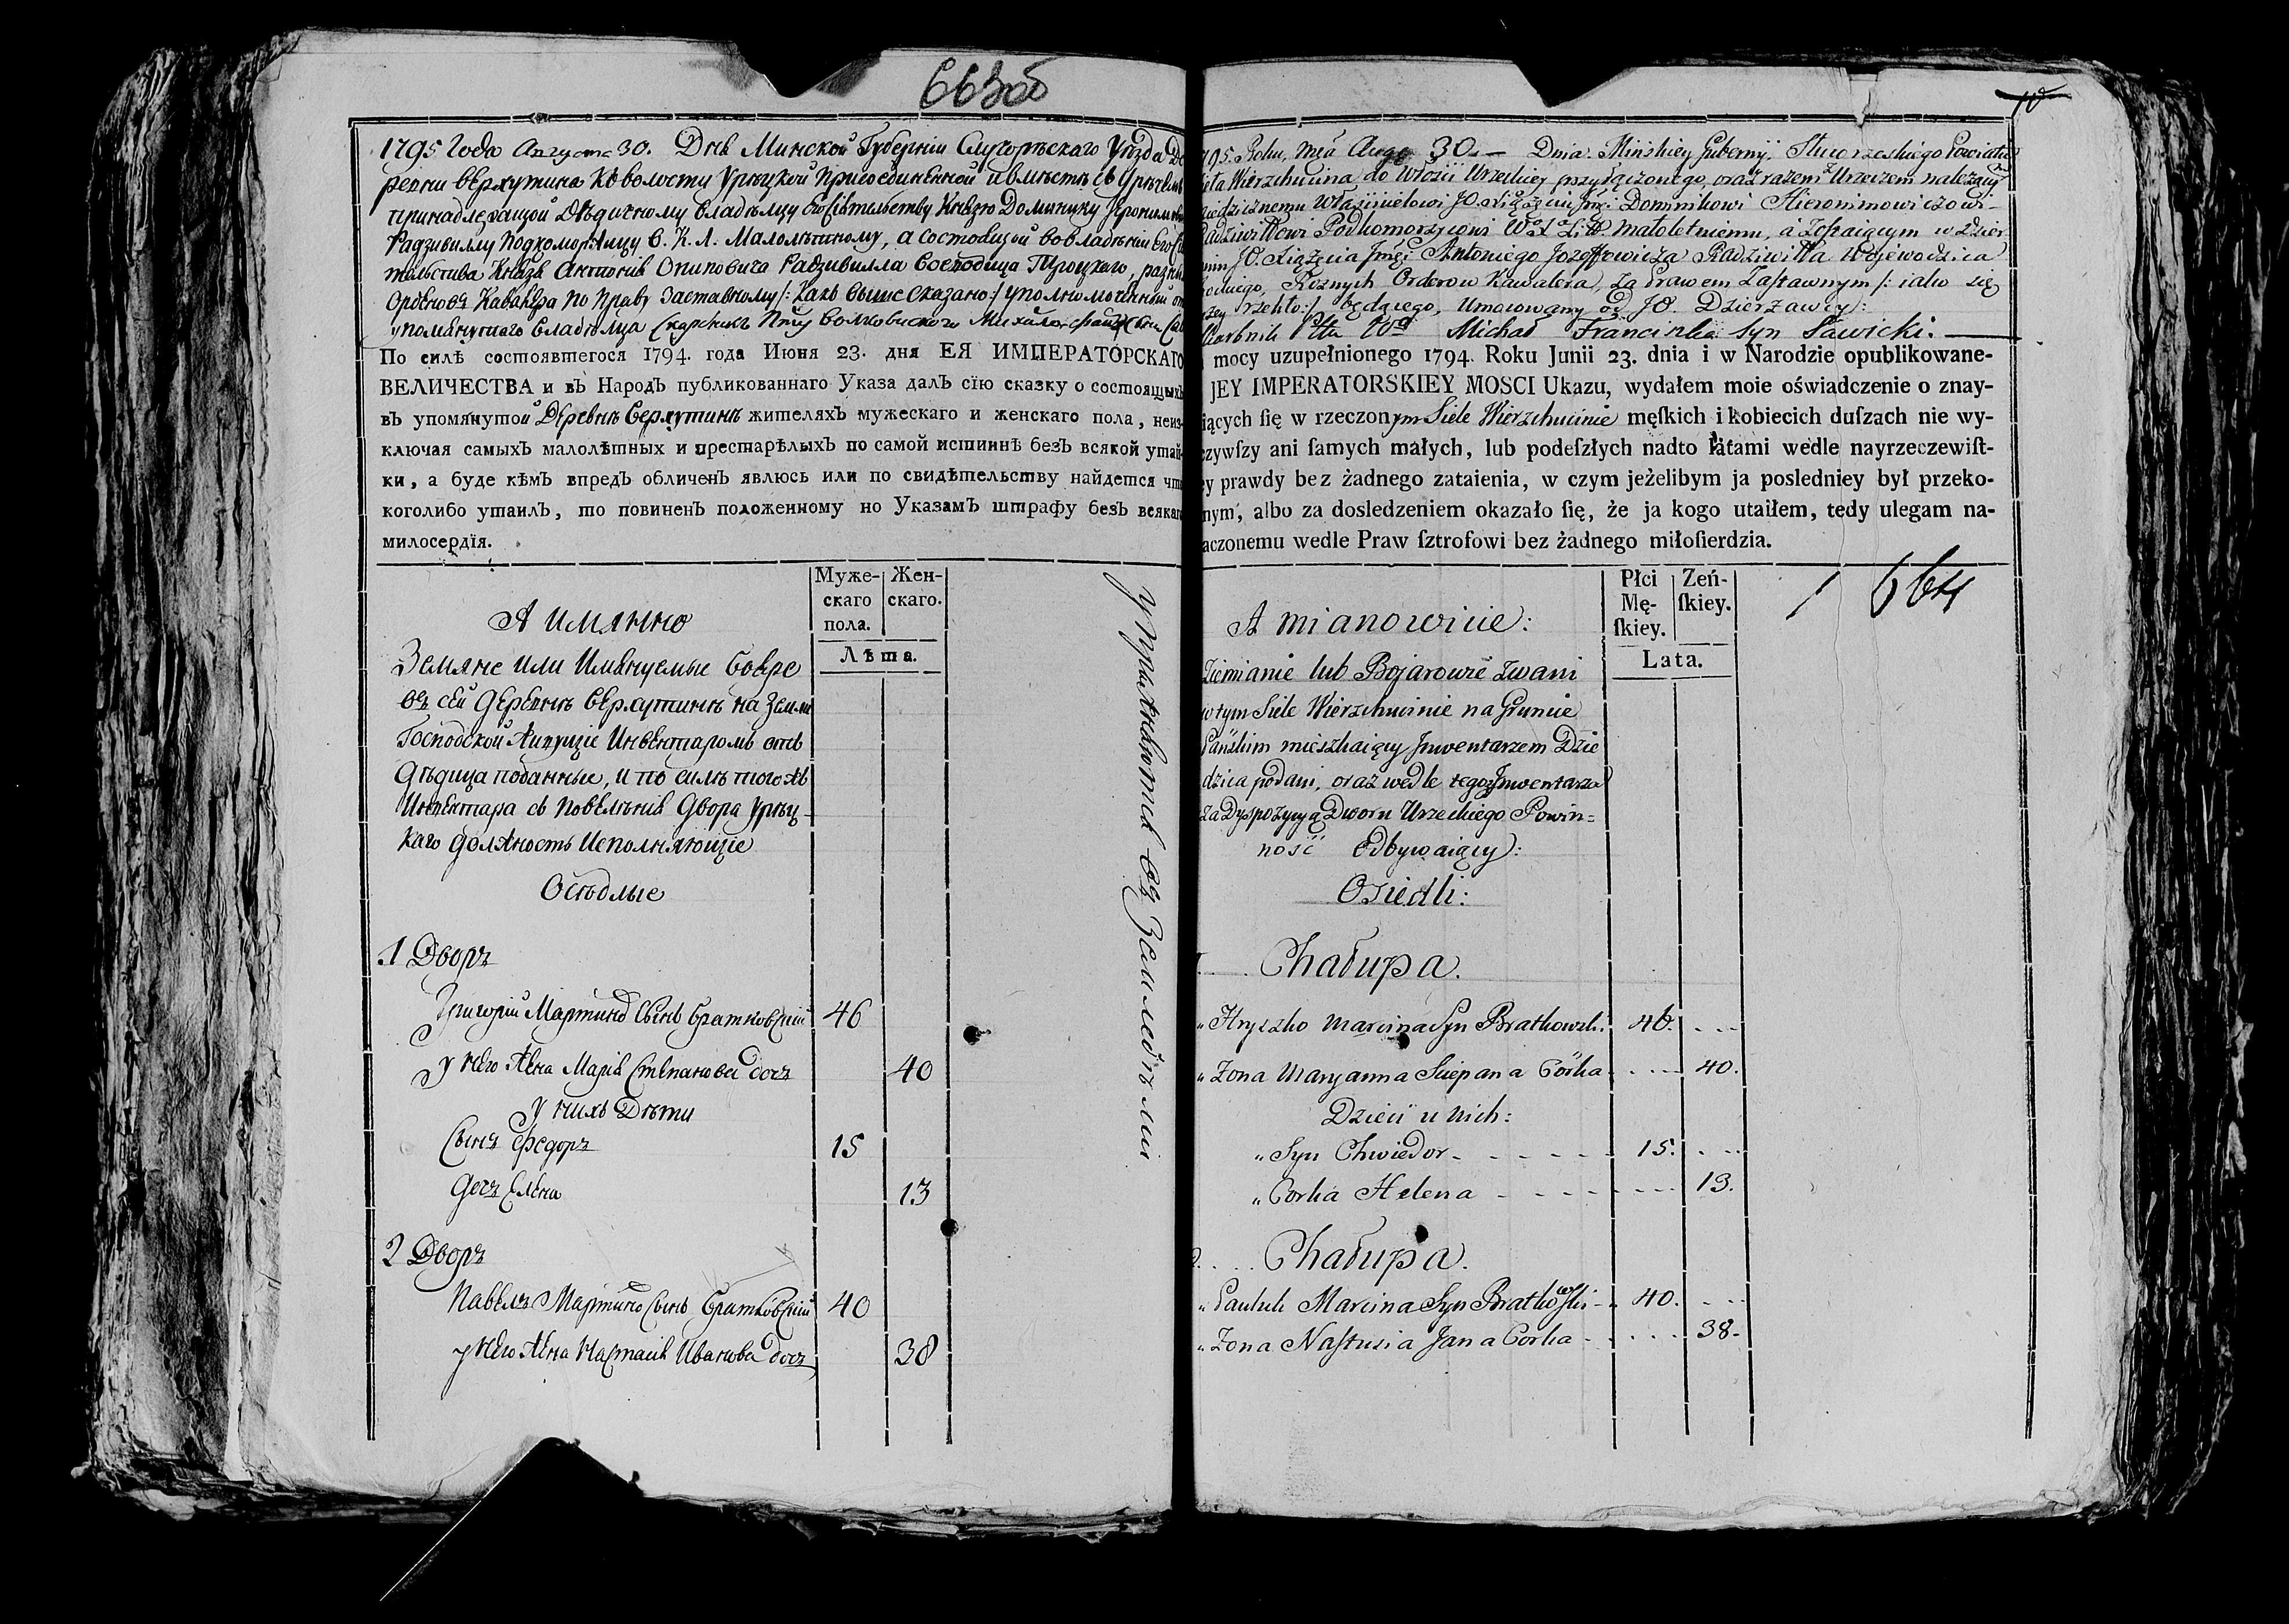 663об
1795 Года Августа 30. Дня Минской Губернїи Слуцорѣскаго Уѣзда Де
ревни Верхутина къ волости Урѣцкой присоединенной и вмѣстѣ съ Урѣчемъ
принадлежащой Дѣдичному владѣльцу Его Свѣтельству Князю Доминику Іерониму
Радзивиллу Подкоморзицу В. К. Л. Малолѣтному, а состоящой во владѣнїи Его
тельства Князя Антонїя Радзивилла Воеводица Троцкаго, разныхъ
Орденовъ Кавалера по праву Заставному /: Какъ выше сказано :/ уполномоченный от
упомянутаго владѣльца Скарбникъ Михайло
По силѣ состоявшегося 1794. года Июня 23. дня ЕЯ ИМПЕРАТОРСКАГО
ВЕЛИЧЕСТВА и въ Народъ публикованнаго Указа далъ сїю сказку о состоящыхъ
въ упомянутой Деревнѣ Верхутинѣ жителяхъ мужескаго и женскаго пола, неиз-
ключая самыхъ малолѣтныхъ и престарѣлыхъ по самой истиннѣ безъ всякой утай-
ки, а буде кѣмъ впредъ обличенъ явлюсь или по свидѣтельству найдется что
коголибо утаилъ, то повиненъ положенному по Указамъ штрафу безъ всякаго
милосердїя.
А имянно
Муже-
скаго
пола.
Жен-
скаго.
Лѣта.
Земяне или Имянуемые Бояре
въ сей Деревнѣ Верхутинѣ на Земли
Господской живущїе Инвентаромъ отъ
Дѣдица поданные, и по силѣ тогожъ
Инвентара съ повелѣнїя Двора Урѣц-
каго должность исполняющїе
Осѣдлые
1 Дворъ
Григорїй Мартина Сынъ Братковскїй 46
У него жена Марїя Степанова дочъ 40
У нихъ Дѣти
Сынъ Федоръ 15
Дочъ Елена 13
2 Дворъ
Павелъ Мартина Сынъ Братковскїй 40
у него жена Настасїя Иванова дочъ 38
10
795. Roku, Mca Augs 30. Dnia. Minskiey Gubernÿi, Powiatu
Wierzchucina do Włości Urzeckiey przyłączonego, oraz razem z Urzeczem należący
Dziedzicznemu Właścicielowi JO. Xiążęciu Jmći Dominikowi Hieronimowiczowi
Radziwiłłowi Podkomorzycowi W. X. Litt. Małoletniemu, á zostaiącym w Dzier
JO. Xiążęcia Jmći Antoniego Jozeffowicza Radziwiłła Wojewodzica
Rożnych Orderow Kawalera, za Prawem Zastawnym /: iako się
rzekło :/ będącego, Umocowany od JO. Dzierżawcy:
Skarbnik Michał Franciszka syn Sawicki.
mocy uzupełnionego 1794. Roku Junii 23. dnia i w Narodzie opublikowane-
JEY IMPERATORSKIEY MOSCI Ukazu, wydałem moie oświadczenie o znay-
iących ſię w rzeczonym Siele Wierzchucinie męſkich i kobiecich duſzach nie wy-
czywſzy ani ſamych małych, lub podeſzłych nadto łatami wedle nayrzeczewiſt-
ey prawdy bez żadnego zataienia, w czym jeżelibym ja posledniey był przeko-
nym, albo za dosledzeniem okazało ſię, że ja kogo utaiłem, tedy ulegam na-
aczonemu wedle Praw ſztrofowi bez żadnego miłoſierdzia.
A mianowicie:
Płci
Mę-
ſkiey.
Zeń-
ſkiey.
Lata.
1 664
Ziemianie lub Bojarowie zwani
w tym Siele Wierzchucinie na Gruncie
Pańskim mieszkaiący Jnwentarzem Dzie
dzica podani, oraz wedle tegoż Jnwentarza
za Dyspozycyą Dworu Urzeckiego Powin=
ność Odbywaiący:
Osiedli:
Chałupa.
" Hryszko Marcina Syn Bratkowski. 46.
" Zona Maryanna Sciepana Córka 40.
Dzieci u nich:
" Syn Chwiedor 15.
" Corka Helena 13.
Chałupa.
" Pauluk Marcina Syn Bratkowski 40.
" Zona Nastusia Jana Corka 38.